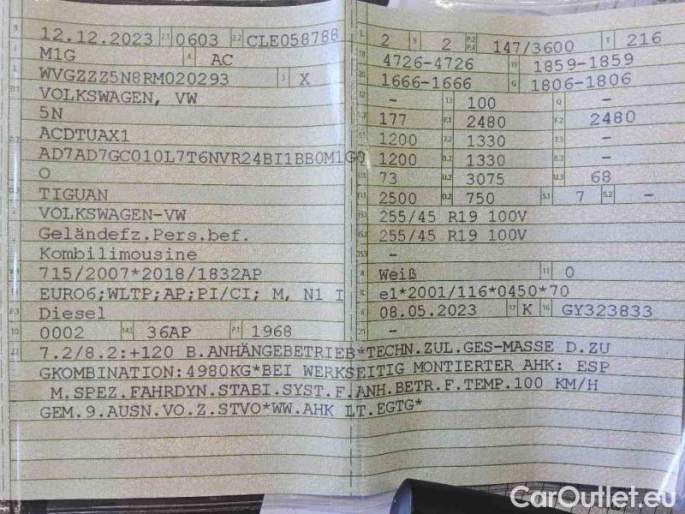 12.12.2023 2.1 0603 2.2 CLE058788
M1G 4 AC
WVGZZZ5N8RM020293 3 X
VOLKSWAGEN, VW
5N
ACDTUAX1
AD7AD7GC010L7T6NVR24BI1BB0M1G0
O
TIGUAN
VOLKSWAGEN-VW
Geländefz.Pers.bef.
Kombilimousine
715/2007*2018/1832AP
EURO6;WLTP;AP;PI/CI; M, N1 I
Diesel
0002 36AP P.1 1968
2 9 2 P.2 P.4 147/3600 T 216
4726-4726 19 1859-1859
1666-1666 G 1806-1806
- 13 100 Q -
177 F.1 2480 F.2 2480
1200 1330
1200 1330
73 U.2 3075 U.3 68
2500 O.2 750 S.1 7 S.2 -
255/45 R19 100V
255/45 R19 100V
-
Weiß 11 0
e1*2001/116*0450*70
08.05.2023 17 K 16 GY323833
-
7.2/8.2:+120 B.ANHÄNGEBETRIEB*TECHN.ZUL.GES-MASSE D.ZU
GKOMBINATION:4980KG*BEI WERKSEITIG MONTIERTER AHK: ESP
M.SPEZ.FAHRDYN.STABI.SYST.F.ANH.BETR.F.TEMP.100 KM/H
GEM.9.AUSN.VO.Z.STVO*WW.AHK LT.EGTG*
CarOutlet.eu